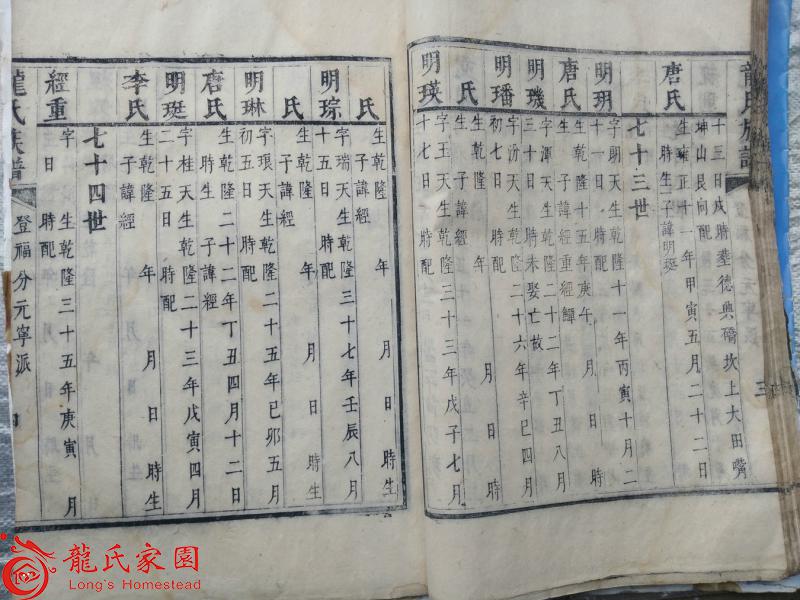 龍氏族譜 三
十三日戌時塟德與礄坎上大田嘴
坤山艮向配
唐氏 生雍正十一年甲寅五月二十二日
時生一子諱明珽
七十三世
明玥 字朗天生乾隆十一年丙寅十月二
十一日 時配
唐氏 生乾隆十五年庚午 月 日 時
生子諱經重經鱓
明璣 字渾天生乾隆二十二年丁丑八月
三十日 時未娶亡故
明璠 字汾天生乾隆二十六年辛巳四月
初七日 時配
氏 生乾隆 年 月 日 時
生子諱經
明瑛 字玉天生乾隆三十三年戊子七月
十七日 時配
氏 生乾隆 年 月 日 時生
子諱經
明琮 字瑞天生乾隆三十七年壬辰八月
十五日 時配
氏 生乾隆 年 月 日 時生
子諱經
明琳 字琅天生乾隆二十五年己卯五月
初五日 時配
唐氏 生乾隆二十二年丁丑四月十二日
時生 子諱經
明珽 字桂天生乾隆二十三年戊寅四月
二十五日 時配
李氏 生乾隆 年 月 日 時生
子諱經
七十四世
經重 字 生乾隆三十五年庚寅 月
日 時配
龍氏族譜 登福分元寧派
龍氏家園
Long's Homestead